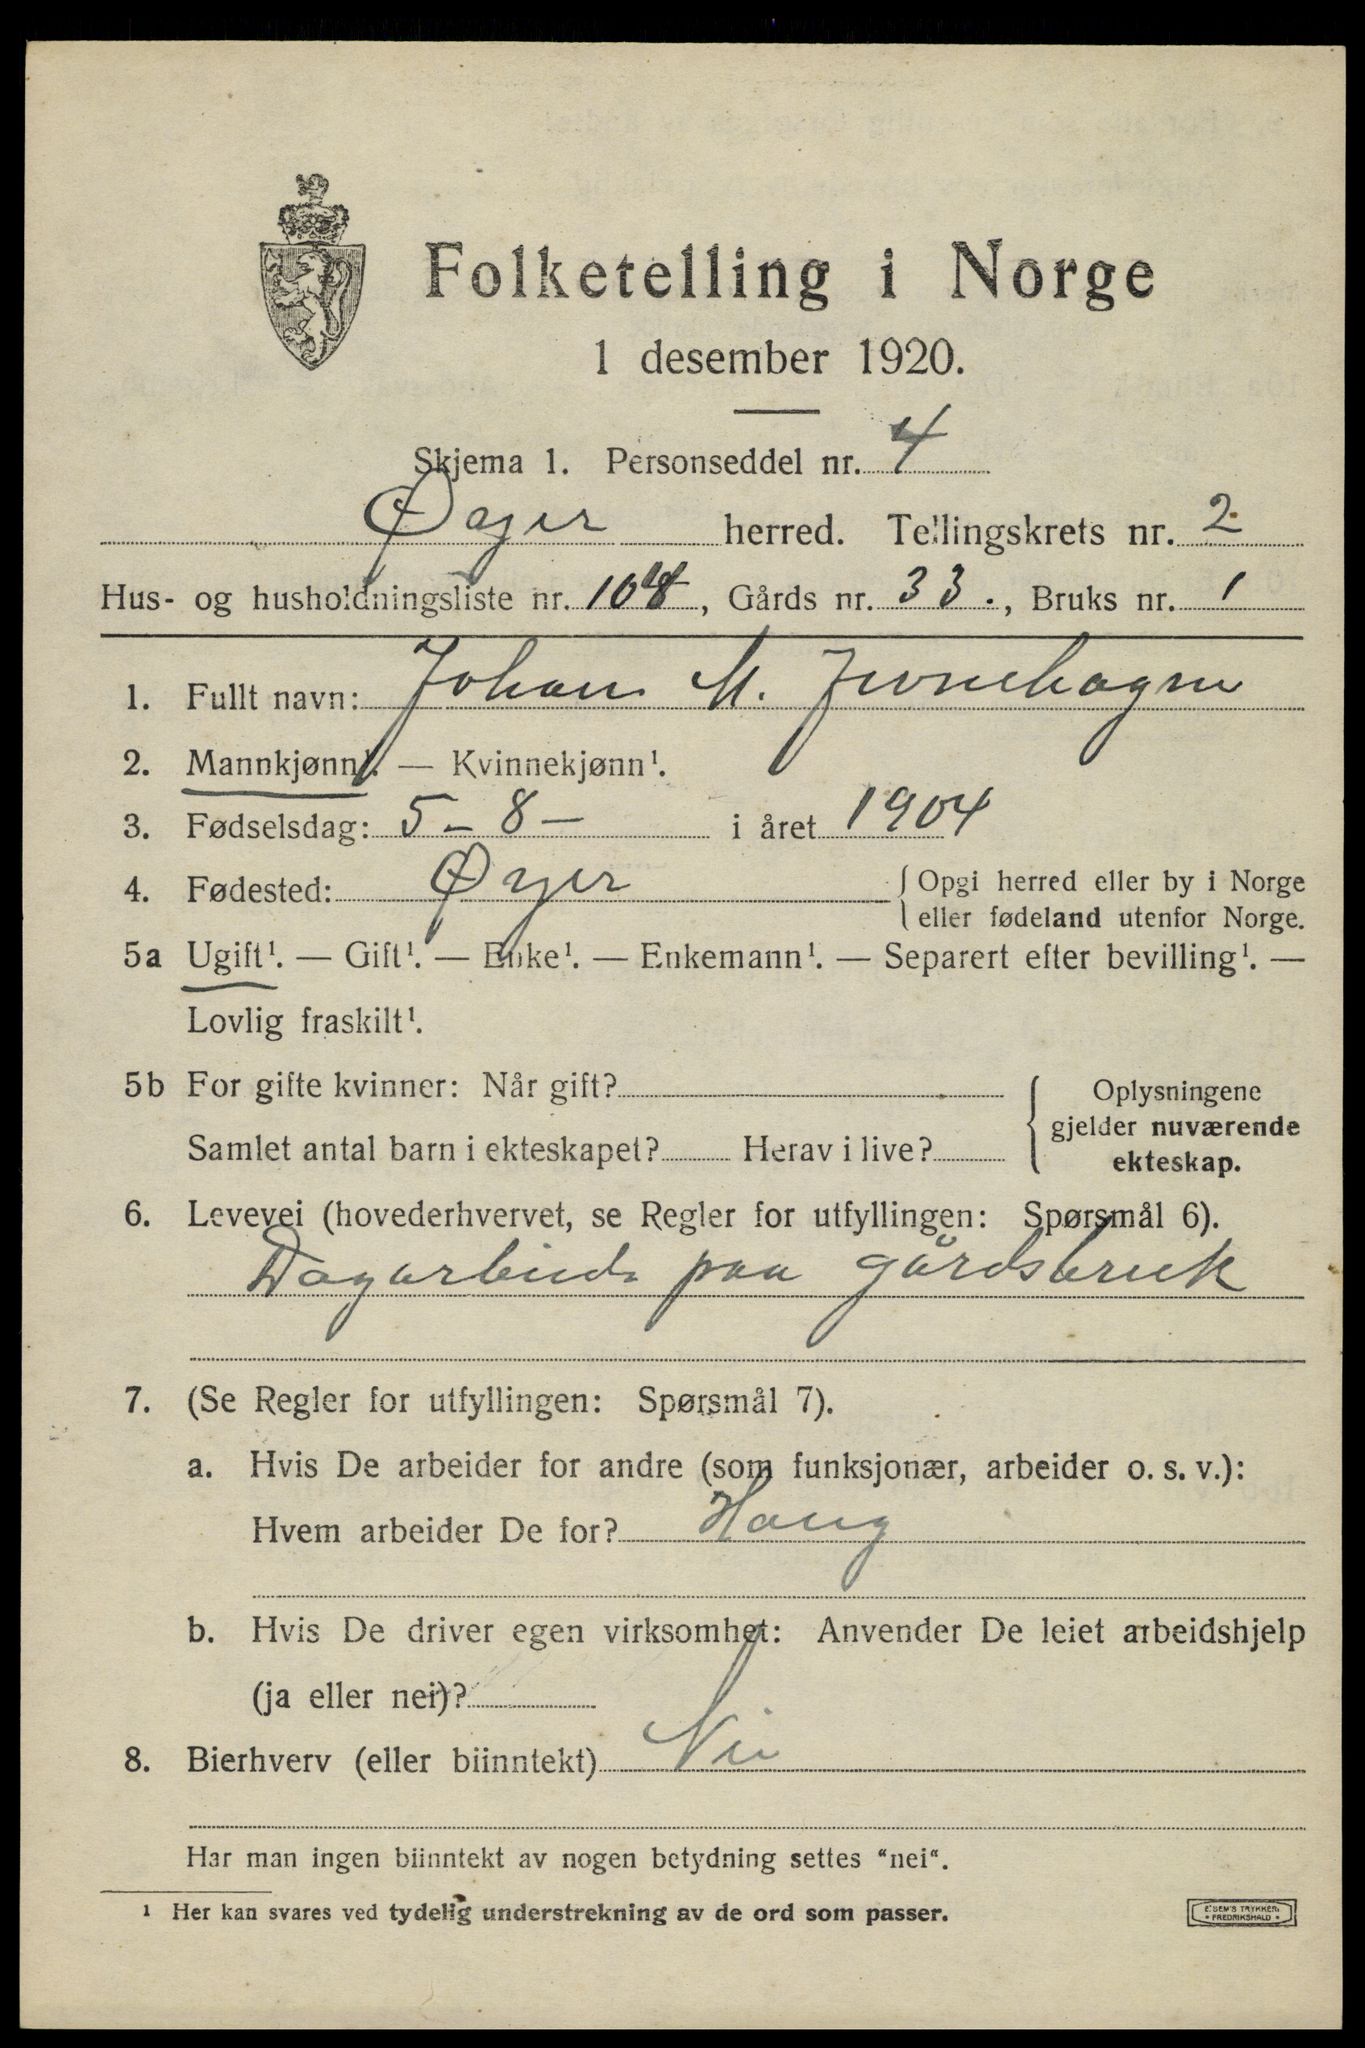 Folketelling i Norge
1 desember 1920.
Skjema 1. Personseddel nr. 4
Øyer herred. Tellingskrets nr. 2
Hus- og husholdningsliste nr. 108, Gårds nr. 33., Bruks nr. 1
1. Fullt navn: Johan M.
2. Mannkjønn¹. — Kvinnekjønn¹.
3. Fødselsdag: 5 - 8 - i året 1904
4. Fødested: Øyer { Opgi herred eller by i Norge
eller fødeland utenfor Norge.
5a Ugift¹. — Gift¹. — Enke¹. — Enkemann¹. — Separert efter bevilling¹. —
Lovlig fraskilt¹.
5b For gifte kvinner: Når gift? { Oplysningene
gjelder nuværende
Samlet antal barn i ekteskapet? Herav i live?
ekteskap.
6. Levevei (hovederhvervet, se Regler for utfyllingen: Spørsmål 6).
Dagarbeide paa gårdsbruk
7. (Se Regler for utfyllingen: Spørsmål 7).
a. Hvis De arbeider for andre (som funksjonær, arbeider o. s. v.):
Hvem arbeider De for? Haug
b. Hvis De driver egen virksomhet: Anvender De leiet arbeidshjelp
(ja eller nei)?
8. Bierhverv (eller biinntekt) Nei
Har man ingen biinntekt av nogen betydning settes "nei".
¹ Her kan svares ved tydelig understrekning av de ord som passer.
FREDRIKSHALD